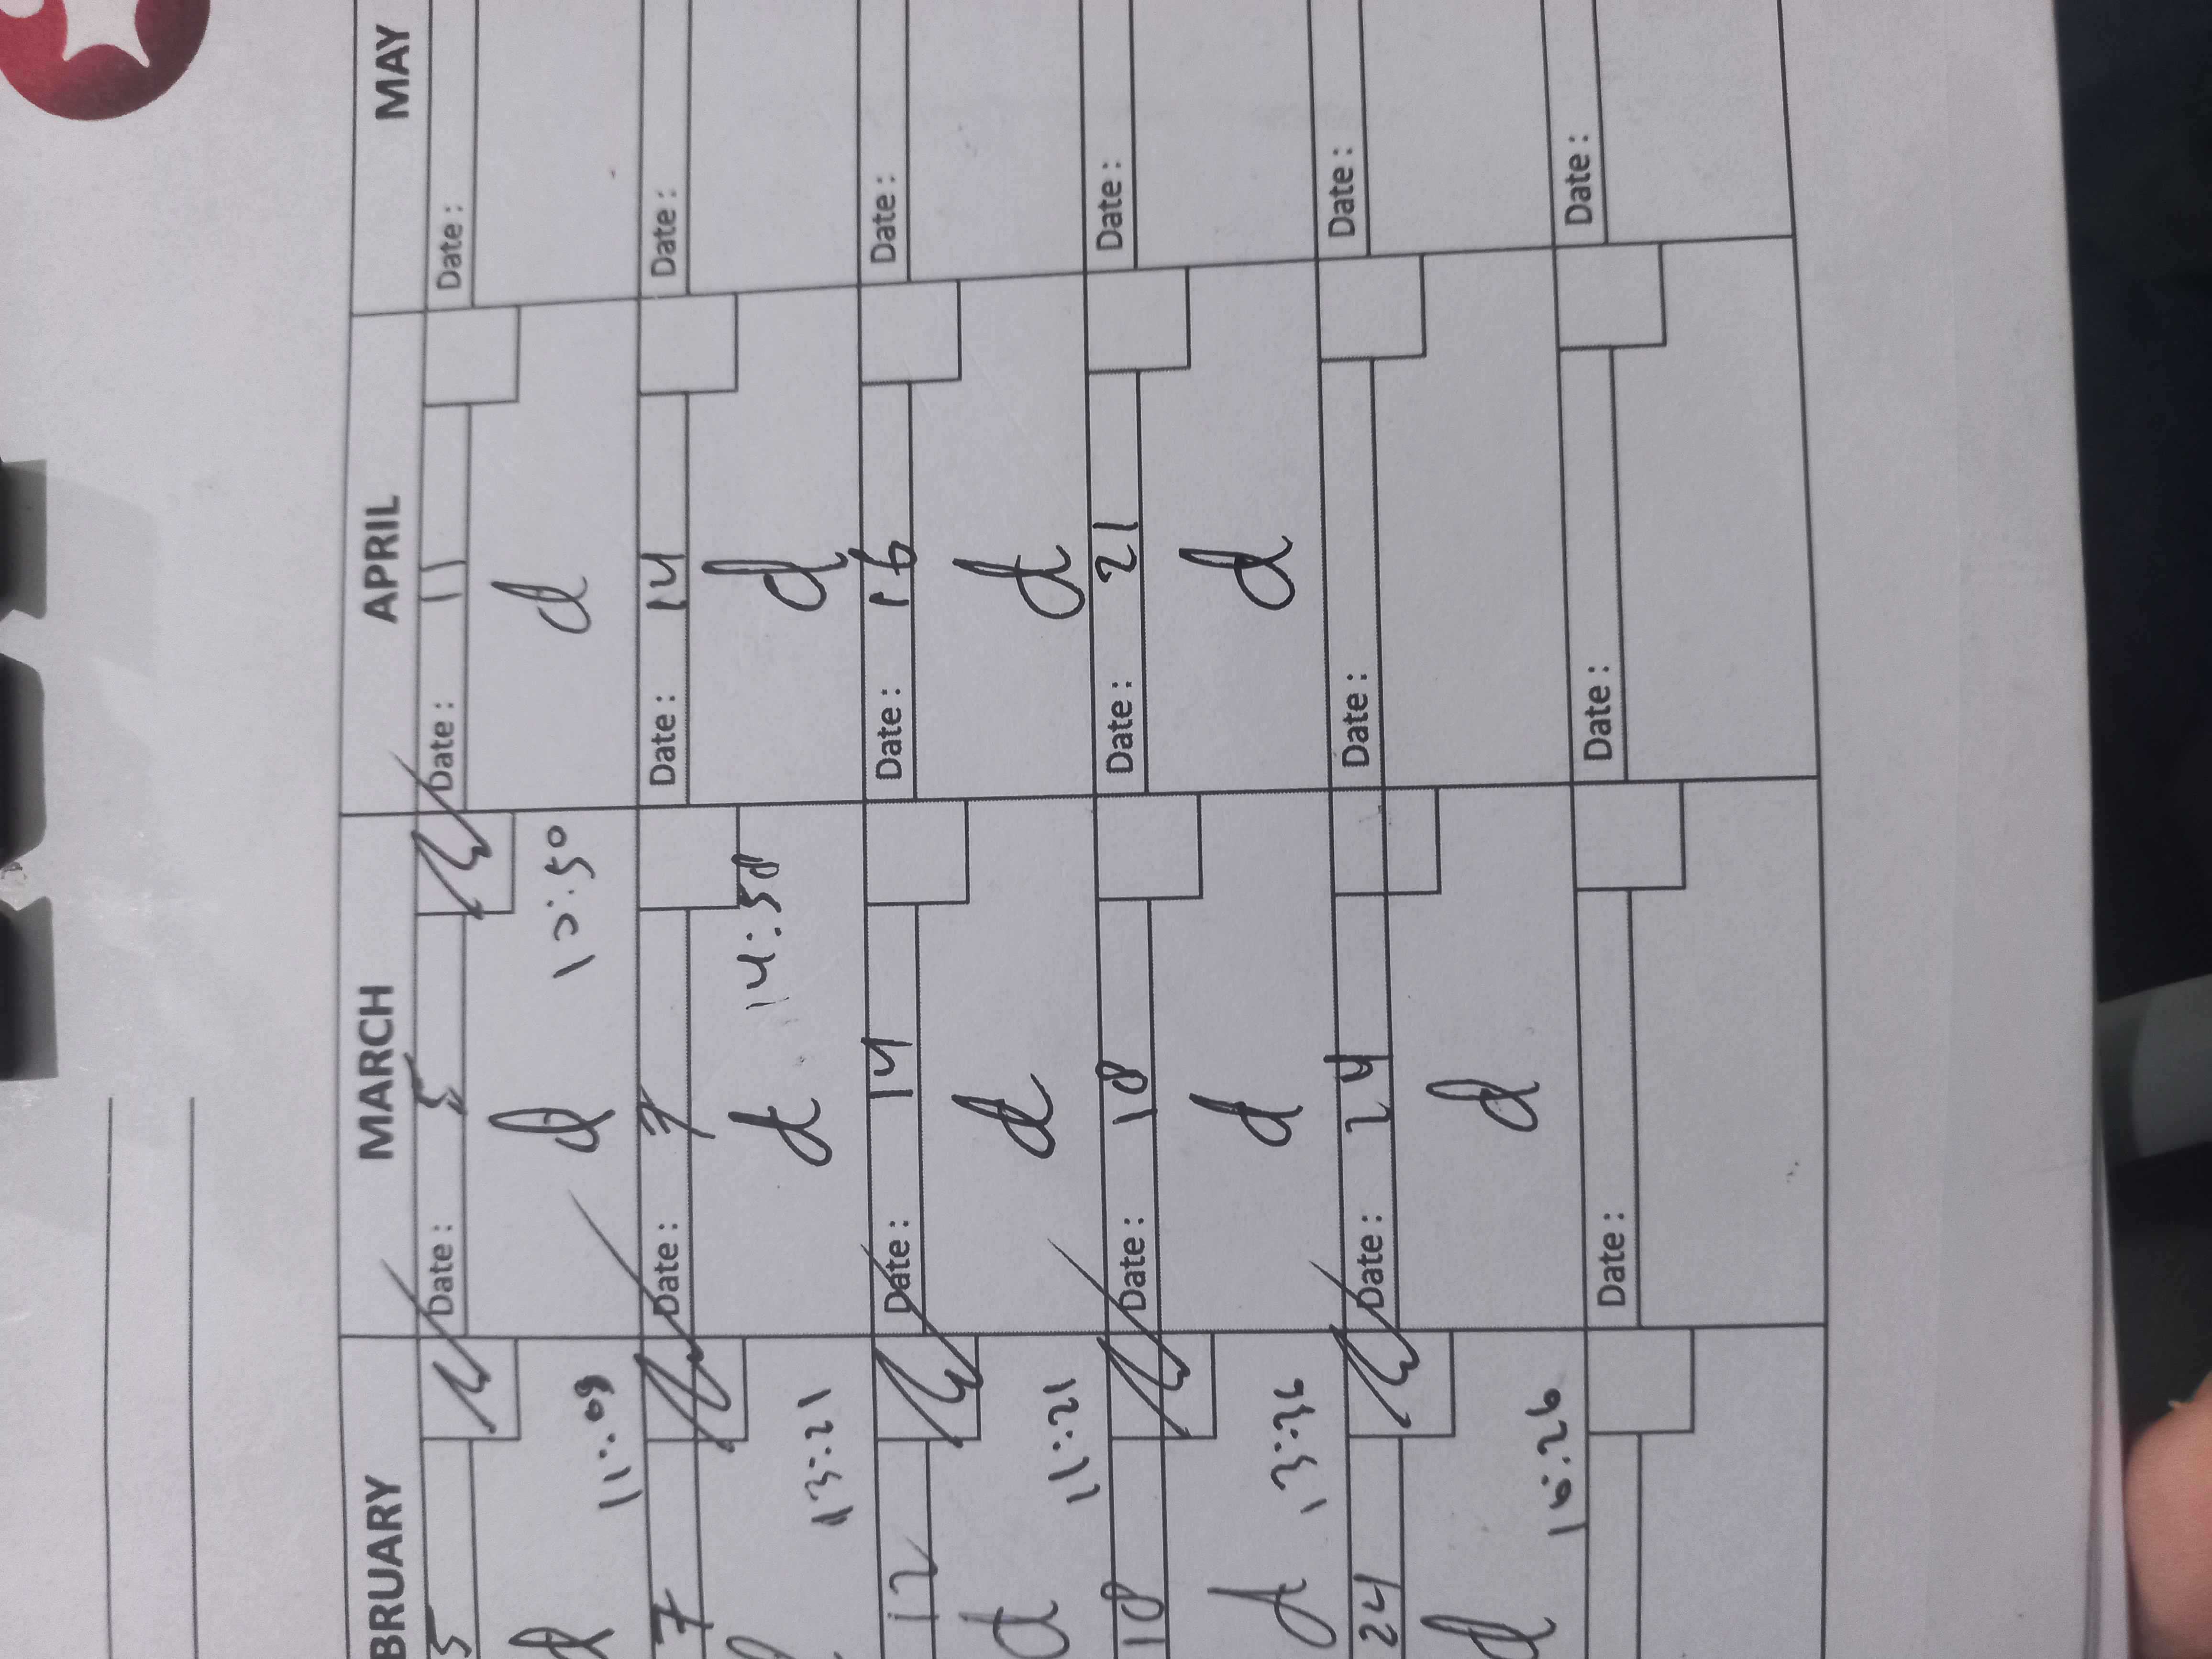 BRUARY MARCH APRIL MAY
5 Date: 5 Date: 11 Date:
d d d
11:09 10:50
7 Date: 7 Date: 14 Date:
d d
13:21 14:58
12 Date: 14 Date: 16 Date:
d d d
11:21
18 Date: 18 Date: 21 Date:
d d d
13:36
24 Date: 24 Date: Date:
d d
16:26
Date: Date: Date: